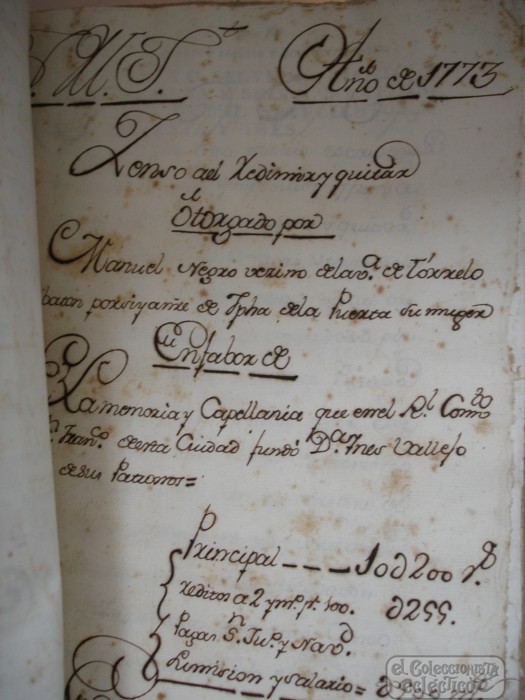 Año de 1773
Zenso al Redimir y quitar
Otorgado por
Manuel Negro vezino de la v.ᵃ de Torrelo
baton por si y a nre de Jpha de la Puerta su muger
En fabor de
La memoria y Capellania que en el R.ˡ Comᵗᵒ
Franᶜᵒ de esta Ciudad fundó D.ᵃ Ines Vallejo
de sus Patronos=
Principal ---- 10d200 r.ˢ
Reditos a 2 y m.º p.r 100. d255.
Pagas S.ⁿ Ju.º y Nav.ᵈ
y Salario=
el Coleccionista
ecléctico